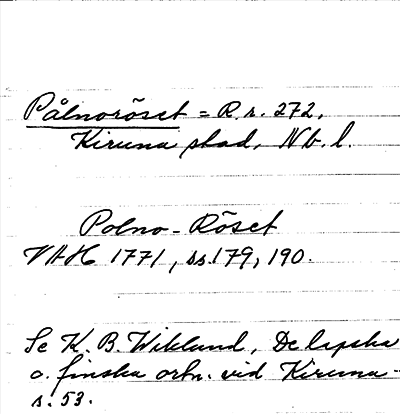 Pålnoröset = R. r. 272,
Kiruna stad, Nb. l.
Polno-Röset
VAH 1771, ss. 179, 190.
Se K. B. Wiklund, De lapska
o. finska ortn. vid Kiruna -
s. 53.